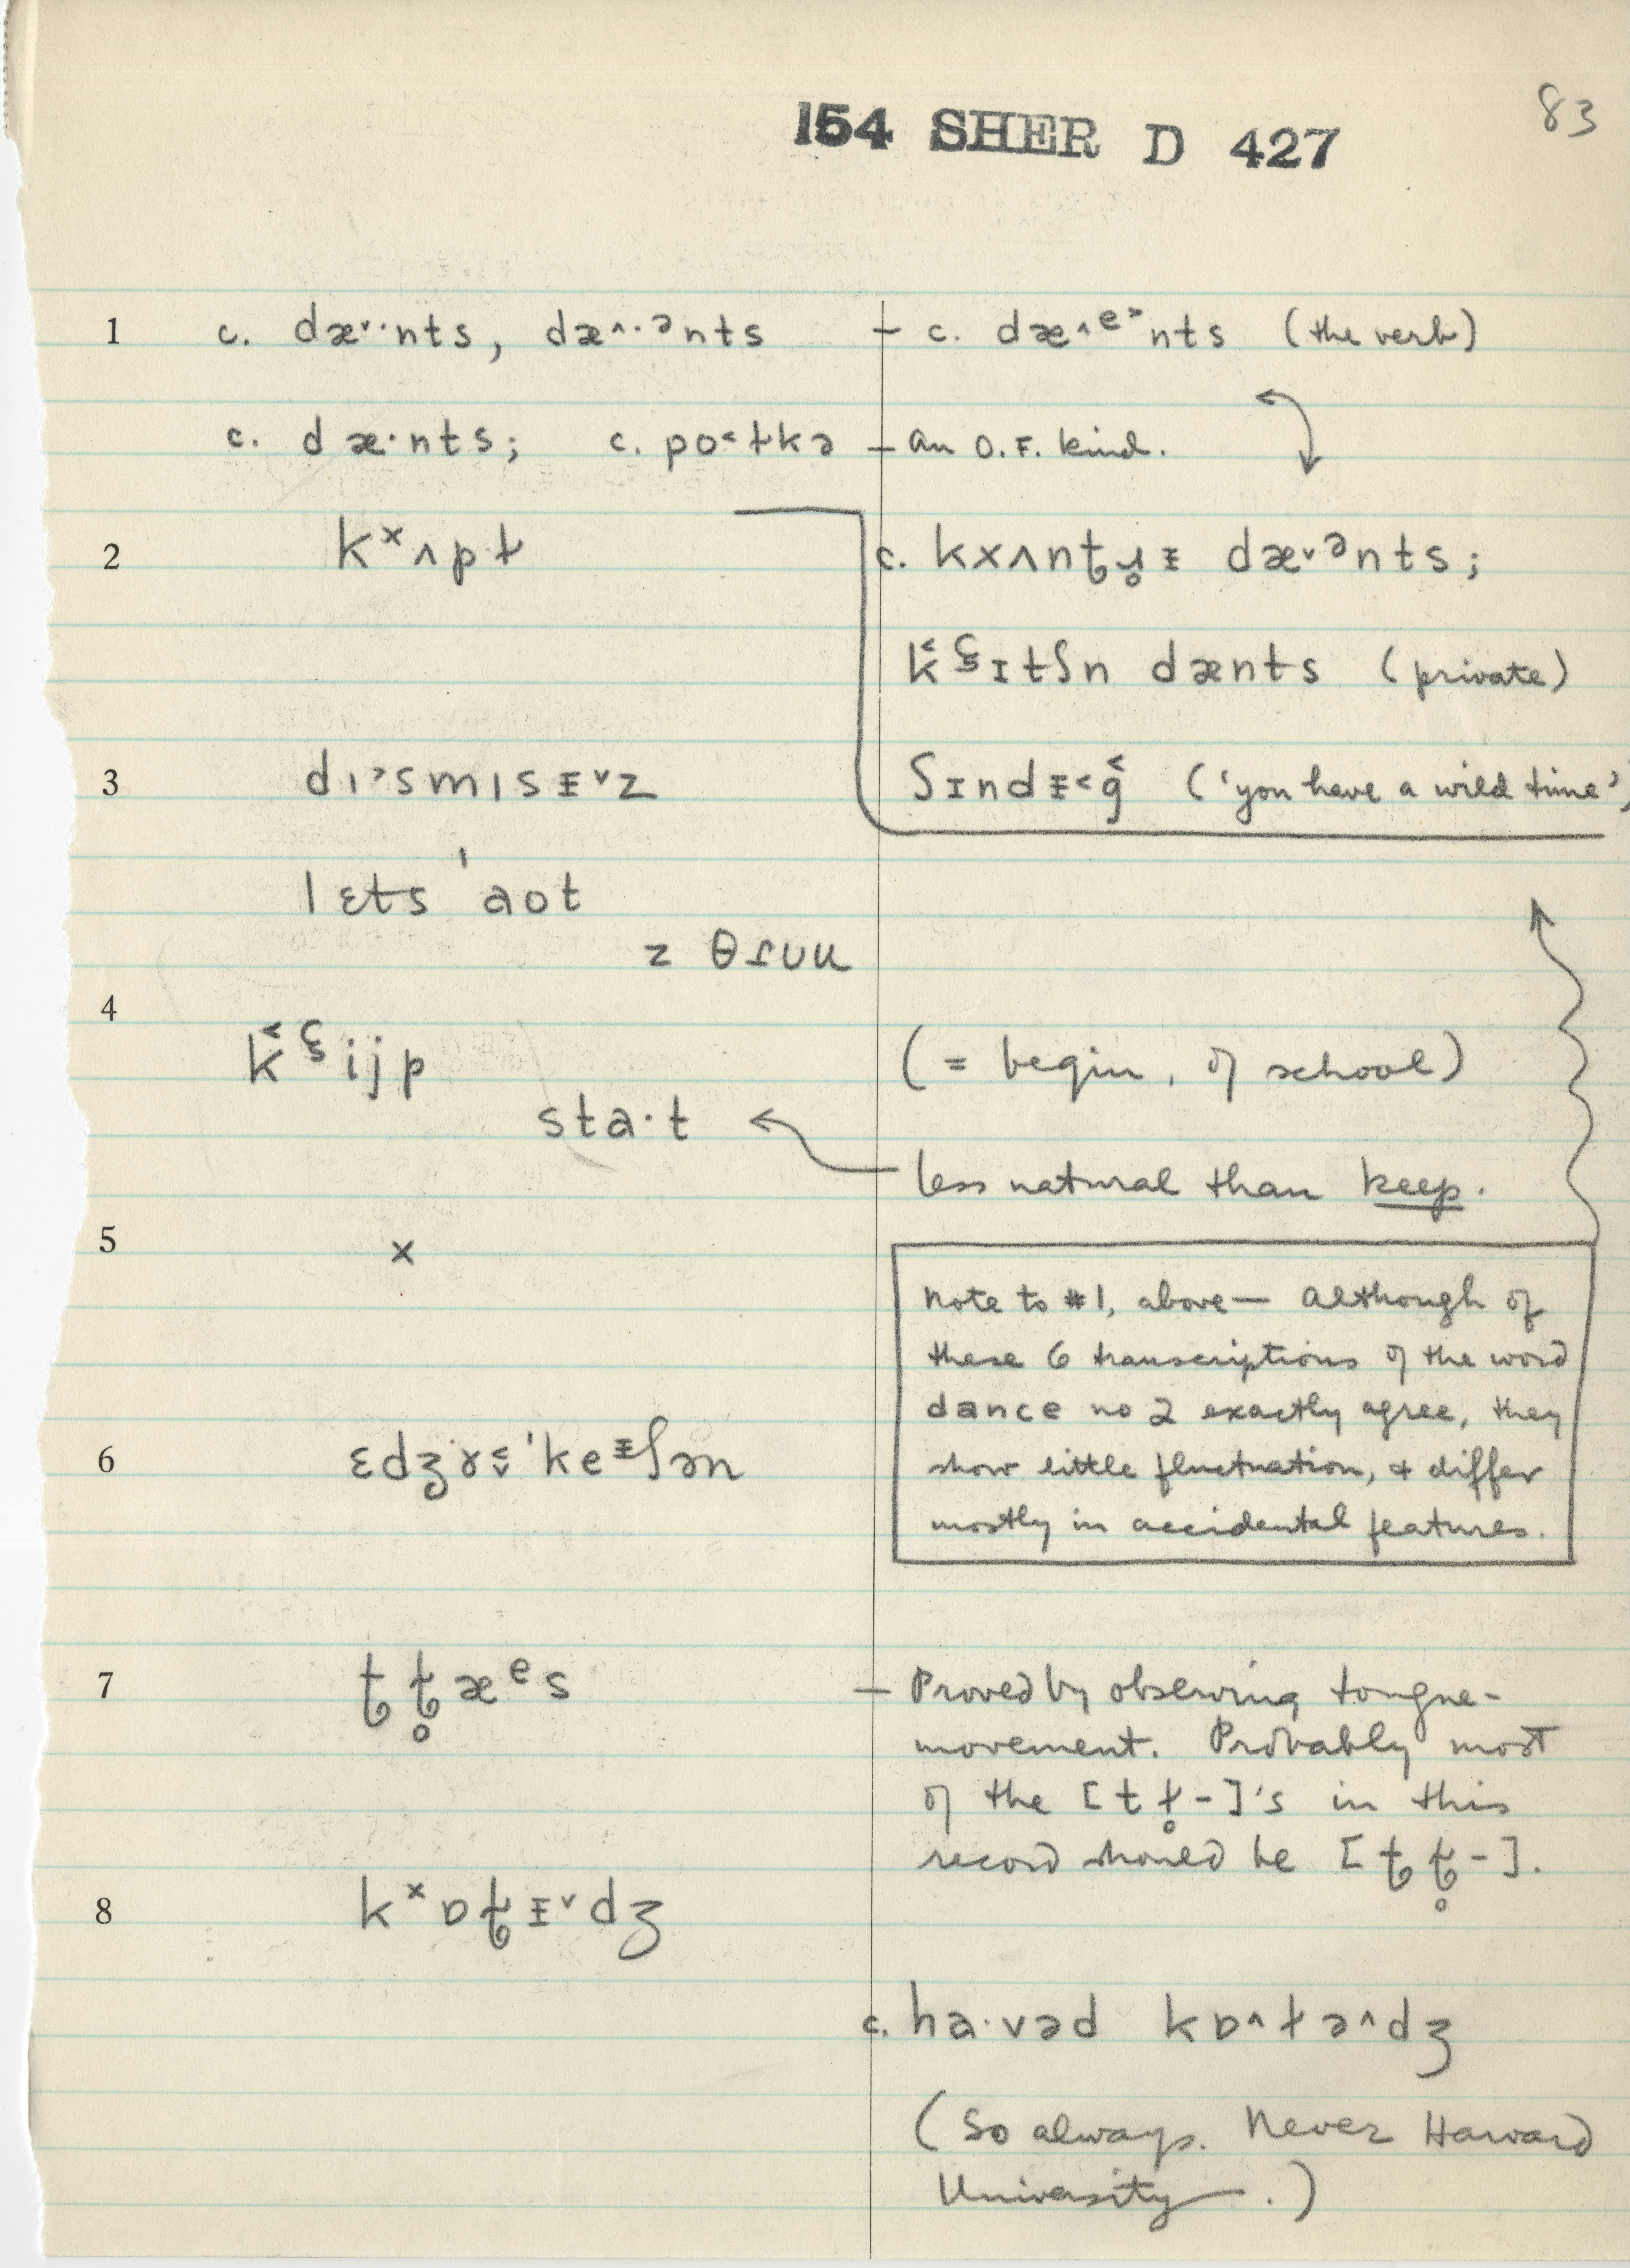 83
154 SHER D 427
1 c. dæ˅·nts, dæ˄·ᵊnts – c. dæ˄ᵉ˃nts (the verb)
c. dæ·nts; c. po˂ɫkə – an O.F. kind.
2 kˣʌpɫ c. kxʌnt dæ˅ᵊnts;
ɪtʃn dænts (private)
3 dɪ˃smɪs ᵻ˅z ʃɪndᵻ˂g̑ ('you have a wild time')
lɛts 'aot
z θɾuu
4
ijp (= begin, of school)
sta·t
less natural than keep.
5 ×
Note to #1, above— Although of
these 6 transcriptions of the word
dance no 2 exactly agree, they
6 show little fluctuation, & differ
mostly in accidental features.
7 æᵉs – Proved by observing tongue-
movement. Probably most
of the [t ɫ̥-]'s in this
record should be
8 kˣɒ
c. ha·vəd kɒ˄ɫə˄dʒ
(So always. Never Harvard
University.)